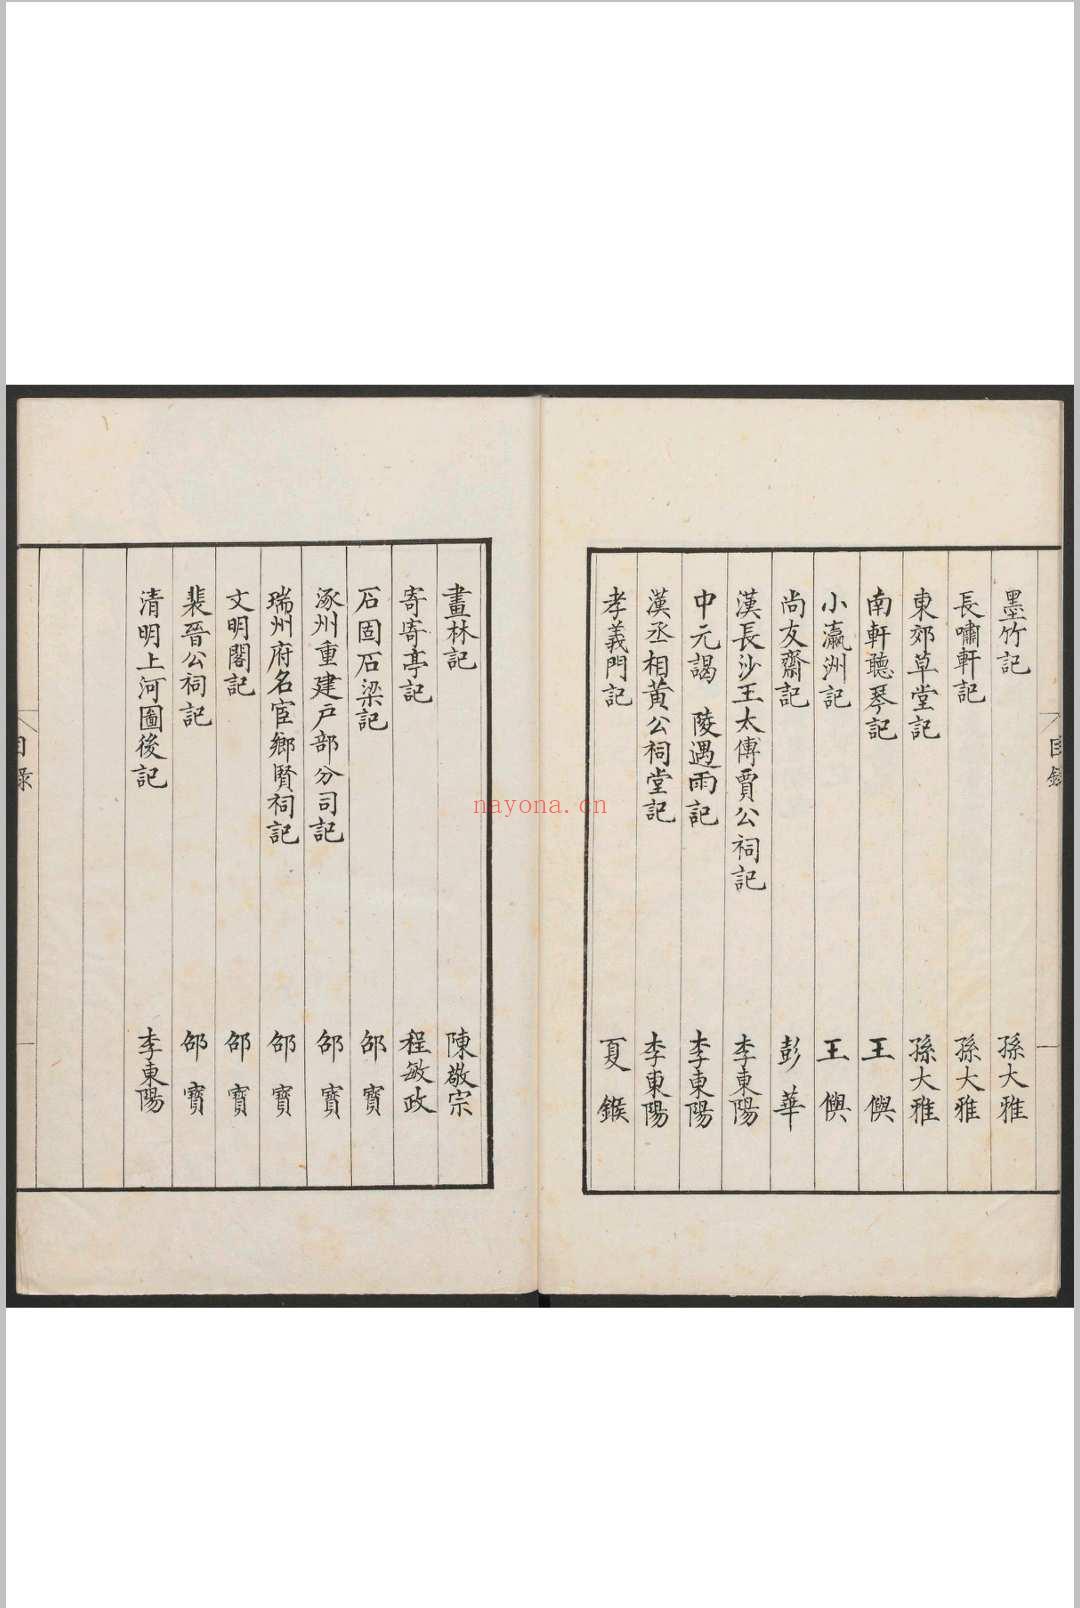 目錄
墨竹記 孫大雅
長嘯軒記 孫大雅
東郊草堂記 孫大雅
南軒聽琴記 王㒜
小瀛洲記 王㒜
尚友齋記 彭華
漢長沙王太傅賈公祠記 李東陽
中元謁 陵遇雨記 李東陽
漢丞相黃公祠堂記 李東陽
孝義門記 夏鍭
畫林記 陳敬宗
寄寄亭記 程敏政
石固石梁記 邵寶
涿州重建戶部分司記 邵寶
瑞州府名宦鄉賢祠記 邵寶
文明閣記 邵寶
裴晉公祠記 邵寶
清明上河圖後記 李東陽
目錄
nayona.cn